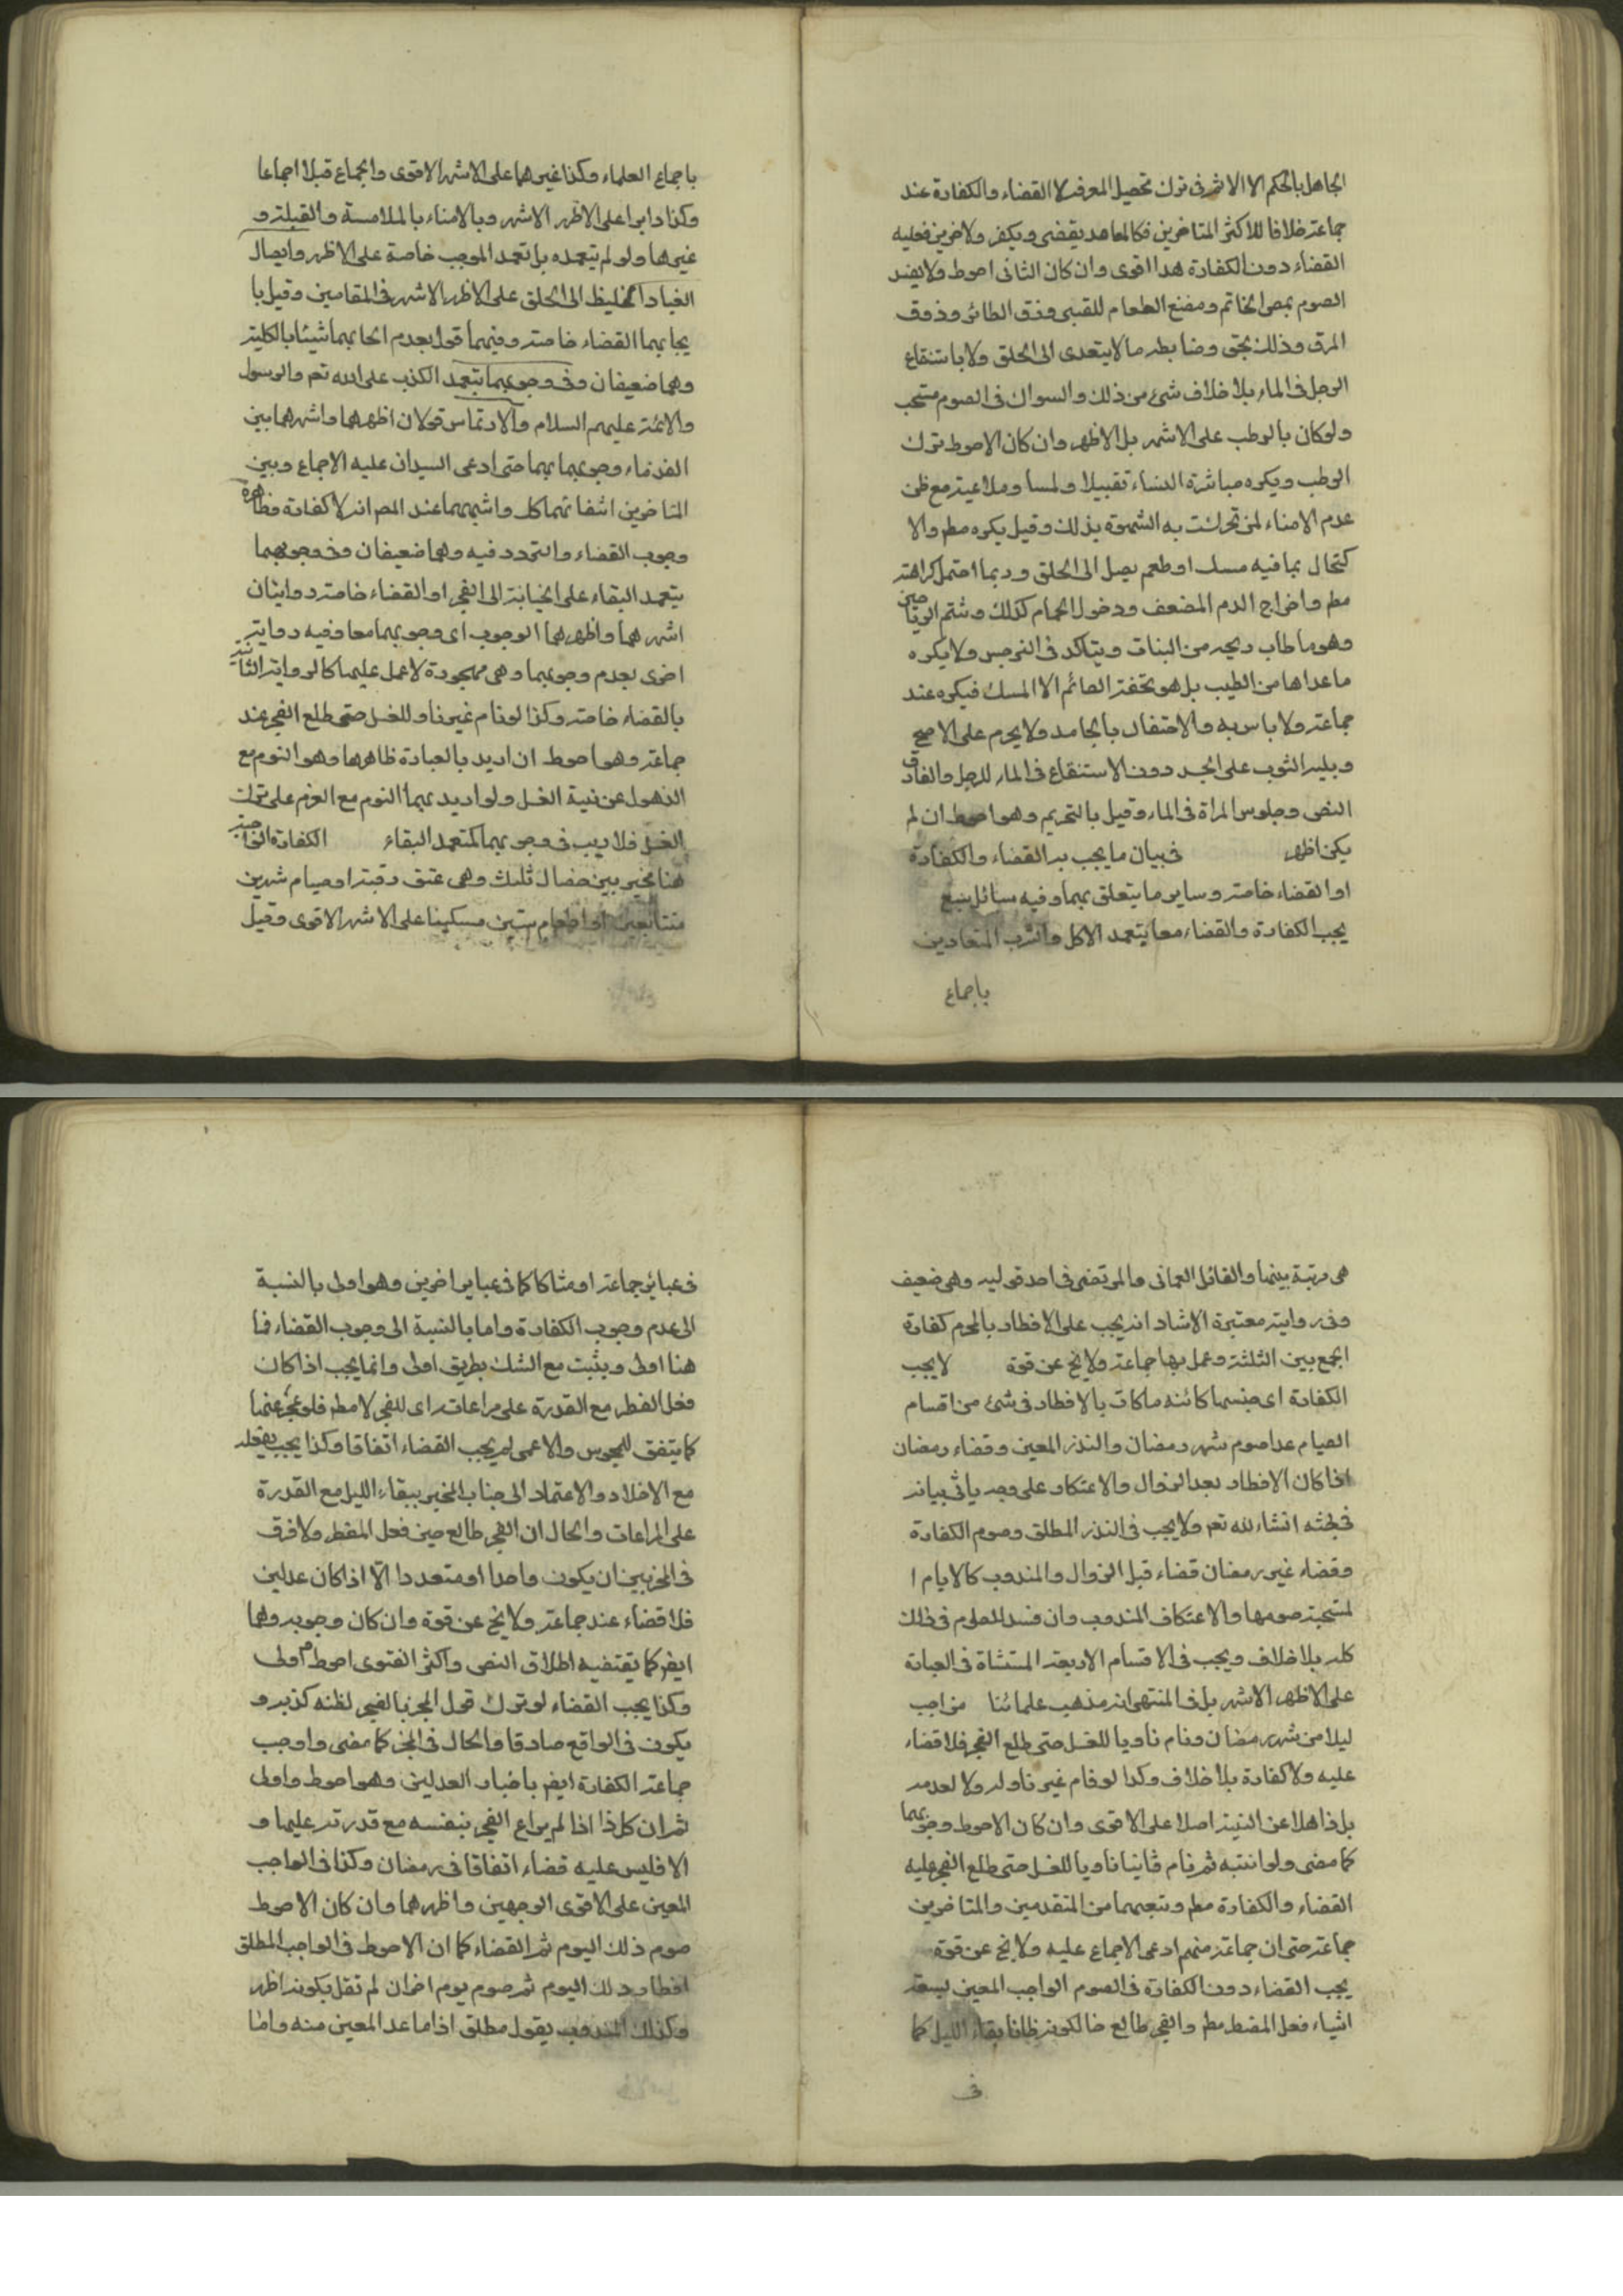 الجاهل بالحكم الا الاثم فى ترك تحصيل المعرفة لا القضاء والكفارة عند
جماعة خلافا للاكثر المتاخرين فكالعامد يقضى ويكفر ولاخرين فعليه
القضاء دون الكفارة هذا اقوى وان كان الثانى احوط ولا يفسد
الصوم بمص الخاتم ومضغ الطعام للصبى وزق الطائر وذوق
المرق وذلك نحوه وضابطه ما لا يتعدى الى الحلق ولا باستنقاع
الرجل فى الماء بلا خلاف شئ من ذلك والسواك فى الصوم مستحب
ولو كان بالرطب على الاشهر بل الاظهر وان كان الاحوط ترك
الرطب ويكره مباشرة النساء تقبيلا ولمسا وملاعبة مع ظن
عدم الامناء لمن تحركت به الشهوة بذلك وقيل يكره مطم والا
كتحال بما فيه مسك او طعم يصل الى الحلق وربما احتمل كراهته
مطم واخراج الدم المضعف ودخول الحمام كذلك وشم الرياحين
وهو ما طاب ريحه من النبات ويتاكد فى النرجس ولا يكره
ما عداها من الطيب بل هو تحفة الصائم الا المسك فيكره عند
جماعة ولا باس به والاحتقان بالجامد ولا يحرم على الاصح
وبلل الثوب على الجسد دون الاستنقاع فى الماء للرجل والفارق
النص وجلوس المراة فى الماء وقيل بالتحريم وهو احوط ان لم
يكن اظهر فى بيان ما يجب به القضاء والكفارة
او القضاء خاصة وساير ما يتعلق بهما وفيه مسائل سبع
يجب الكفارة والقضاء معا بتعمد الاكل والشرب المعتادين
باجماع
باجماع العلماء وكذا غيرهما على الاشهر الاقوى والجماع قبلا اجماعا
وكذا دبرا على الاظهر الاشهر وبالامناء بالملامسة والقبلة و
غيرها ولو لم يتعمده بل تعمد الموجب خاصة على الاظهر وايصال
الغبار الغليظ الى الحلق على الاظهر الاشهر فى المقامين وقيل با
يجابهما القضاء خاصة وفيهما قول بعدم ايجابهما شيئا بالكلية
وهما ضعيفان وفى وجوبهما بتعمد الكذب على الله تعم والرسول
والائمة عليهم السلام والارتماس قولان اظهرهما واشهرهما بين
القدماء وجوبهما بهما حتى ادعى السيدان عليه الاجماع وبين
المتاخرين انتفائهما كل واشبههما عند المص انه لا كفارة وظاهره
وجوب القضاء والتردد فيه وهما ضعيفان وفى وجوبهما
بتعمد البقاء على الجنابة الى الفجر او القضاء خاصة روايتان
اشهرهما واظهرهما الوجوب اى وجوبهما معا وفيه رواية
اخرى بعدم وجوبهما وهى مهجورة لا عمل عليها كالرواية الثانية
بالقضاء خاصة وكذا لو نام غير ناو للغسل حتى طلع الفجر عند
جماعة وهو احوط ان اريد بالعبارة ظاهرها وهو النوم مع
الذهول عن نية الغسل ولو اريد بها النوم مع العزم على ترك
الغسل فلا ريب فى وجوبهما كمتعمد البقاء الكفارة الواجبة
هنا تخيير بين خصال ثلث وهى عتق رقبة او صيام شهرين
متتابعين او اطعام ستين مسكينا على الاشهر الاقوى وقيل
هى مرتبة بينها والقائل العمانى والمرتضى فى احد قوليه وهى ضعيف
وفى رواية معتبرة الاسناد انه يجب على الافطار بالمحرم كفارة
الجمع بين الثلثة وعمل بها جماعة ولا يخ عن قوة لا يجب
الكفارة اى جنسها كائنة ما كانت بالافطار فى شئ من اقسام
الصيام عدا صوم شهر رمضان والنذر المعين وقضاء رمضان
اذا كان الافطار بعد الزوال والاعتكاف على وجه ياتى بيانه
فى بحثه انشاء الله تعم ولا يجب فى النذر المطلق وصوم الكفارة
وقضاء غير رمضان قضاء قبل الزوال والمندوب كالايام ا
لمستحبة صومها والاعتكاف المندوب وان فسد الصوم فى ذلك
كله بلا خلاف ويجب فى الاقسام الاربعة المستثناة فى العبارة
على الاظهر الاشهر بل فى المنتهى انه مذهب علمائنا من اجنب
ليلا من شهر رمضان ونام ناويا للغسل حتى طلع الفجر فلا قضاء
عليه ولا كفارة بلا خلاف وكذا لو نام غير ناو له ولا لعدمه
بل ذاهلا عن النية اصلا على الاقوى وان كان الاحوط وجوبهما
كما مضى ولو انتبه ثم نام ثانيا ناويا للغسل حتى طلع الفجر عليه
القضاء والكفارة مطم وتبعهما من المتقدمين والمتاخرين
جماعة حتى ان جماعة منهم ادعى الاجماع عليه ولا يخ عن قوة
يجب القضاء دون الكفارة فى الصوم الواجب المعين بسبعة
اشياء فعل المفطر مطم والفجر طالع حالكونه ظانا بقاء الليل كما
فى
فى عبائر جماعة او شاكا كما فى عباير اخرين وهو اولى بالنسبة
الى عدم وجوب الكفارة واما بالنسبة الى وجوب القضاء فما
هنا اولى ويثبت مع الشك بطريق اولى وانما يجب اذا كان
فعل المفطر مع القدرة على مراعات راى للفجر لا مطم فلو عجز عنها
كما يتفق للمحبوس والاعمى لم يجب القضاء اتفاقا وكذا يجب بفعله
مع الاخلاد والاعتماد الى جناب المخبر ببقاء الليل مع القدرة
على المراعات والحال ان الفجر طالع حين فعل المفطر ولا فرق
فى المخبر بين ان يكون واحدا او متعددا الا اذا كان عدلين
فلا قضاء عند جماعة ولا يخ عن قوة وان كان وجوبه وهما
ايضم كما يقتضيه اطلاق النص واكثر الفتوى احوط واولى
وكذا يجب القضاء لو ترك قول المخبر بالفجر لظنه كذبه و
يكون فى الواقع صادقا والحال فى المخبر كما مضى واوجب
جماعة الكفارة ايضم باخبار العدلين وهو احوط واولى
ثم ان كل ذا اذا لم يراع الفجر بنفسه مع قدرته عليها و
الا فليس عليه قضاء اتفاقا فى رمضان وكذا فى الواجب
المعين على الاقوى الوجهين واظهرهما وان كان الاحوط
صوم ذلك اليوم ثم القضاء كما ان الاحوط فى الواجب المطلق
افطار ذلك اليوم ثم صوم يوم اخر ان لم نقل بكونه اظهر
وكذلك المندوب بقول مطلق اذ ما عد المعين منه واما